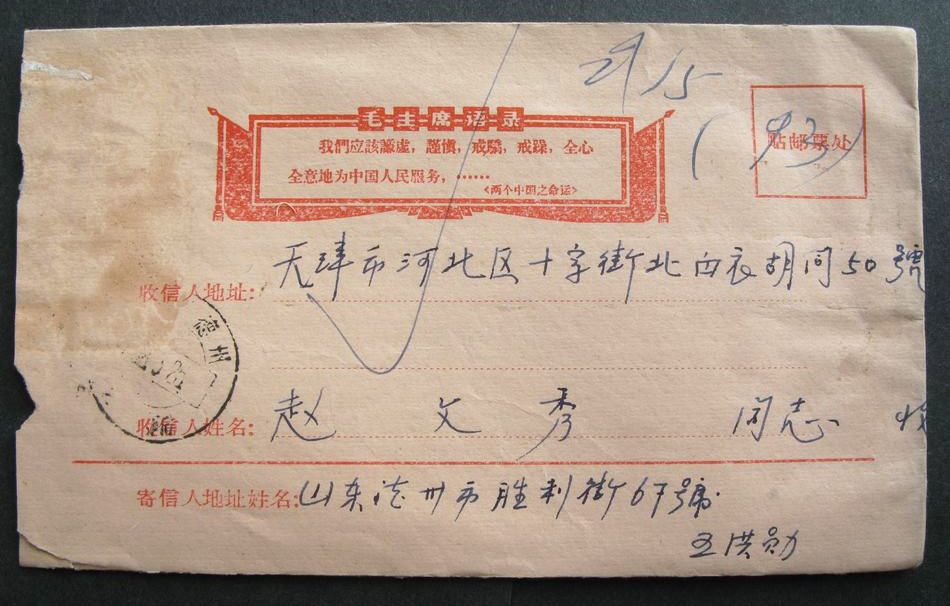 29/5
(93)
毛主席语录
我們应該謙虚，謹慎，戒驕，戒躁，全心
全意地为中国人民服务，……
《两个中国之命运》
贴邮票处
收信人地址：天津市河北区十字街北白衣胡同50號
收信人姓名：赵文秀 同志 收
寄信人地址姓名：山东德州市胜利街67號
王洪勋
德州